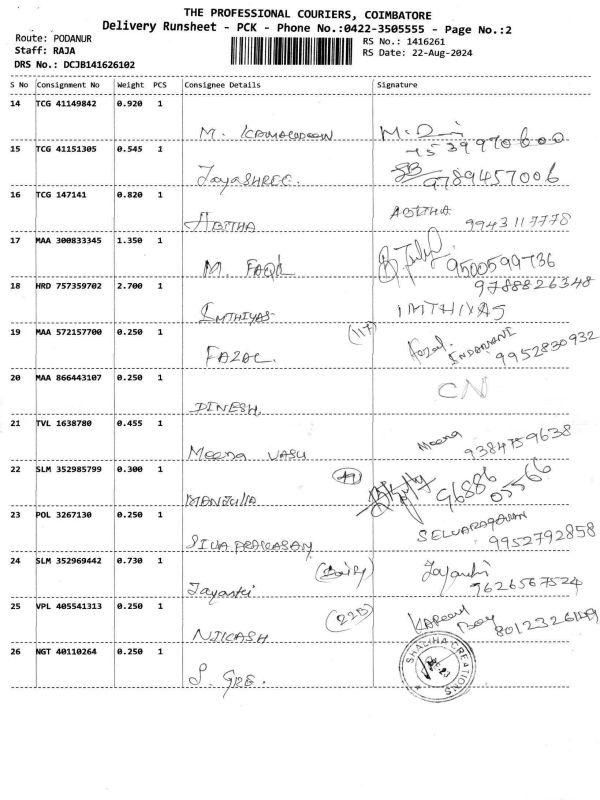 THE PROFESSIONAL COURIERS, COIMBATORE
Delivery Runsheet - PCK - Phone No.:0422-3505555 - Page No.:2
Route: PODANUR
Staff: RAJA
DRS No.: DCJB141626102
RS No.: 1416261
RS Date: 22-Aug-2024
S No Consignment No Weight PCS Consignee Details Signature
14 TCG 41149842 0.920 1
M. 7539970600
15 TCG 41151305 0.545 1
JayaSHREE. 9789457006
16 TCG 147141 0.820 1
ABITHA ABITHA 9943117778
17 MAA 300833345 1.350 1
M. FAQH 9500599736
18 HRD 757359702 2.700 1 9788826348
IMTHIYAS IMTHIYAS
19 MAA 572157700 0.250 1 (117)
FAZAL Fazal 9952830932
20 MAA 866443107 0.250 1
DINESH CN
21 TVL 1638780 0.455 1
Meena VASU Meena 9384759638
22 SLM 352985799 0.300 1
MANJULA 96886 05566
23 POL 3267130 0.250 1
SIVA PRAKASAM SELVARAGAVAN 9952792858
24 SLM 352969442 0.730 1
Jayanti Jayanthi 9626567524
25 VPL 405541313 0.250 1 (22B)
NIKASH KAREEM
26 NGT 40110264 0.250 1
S. GRE. SHALIHA CREATIONS